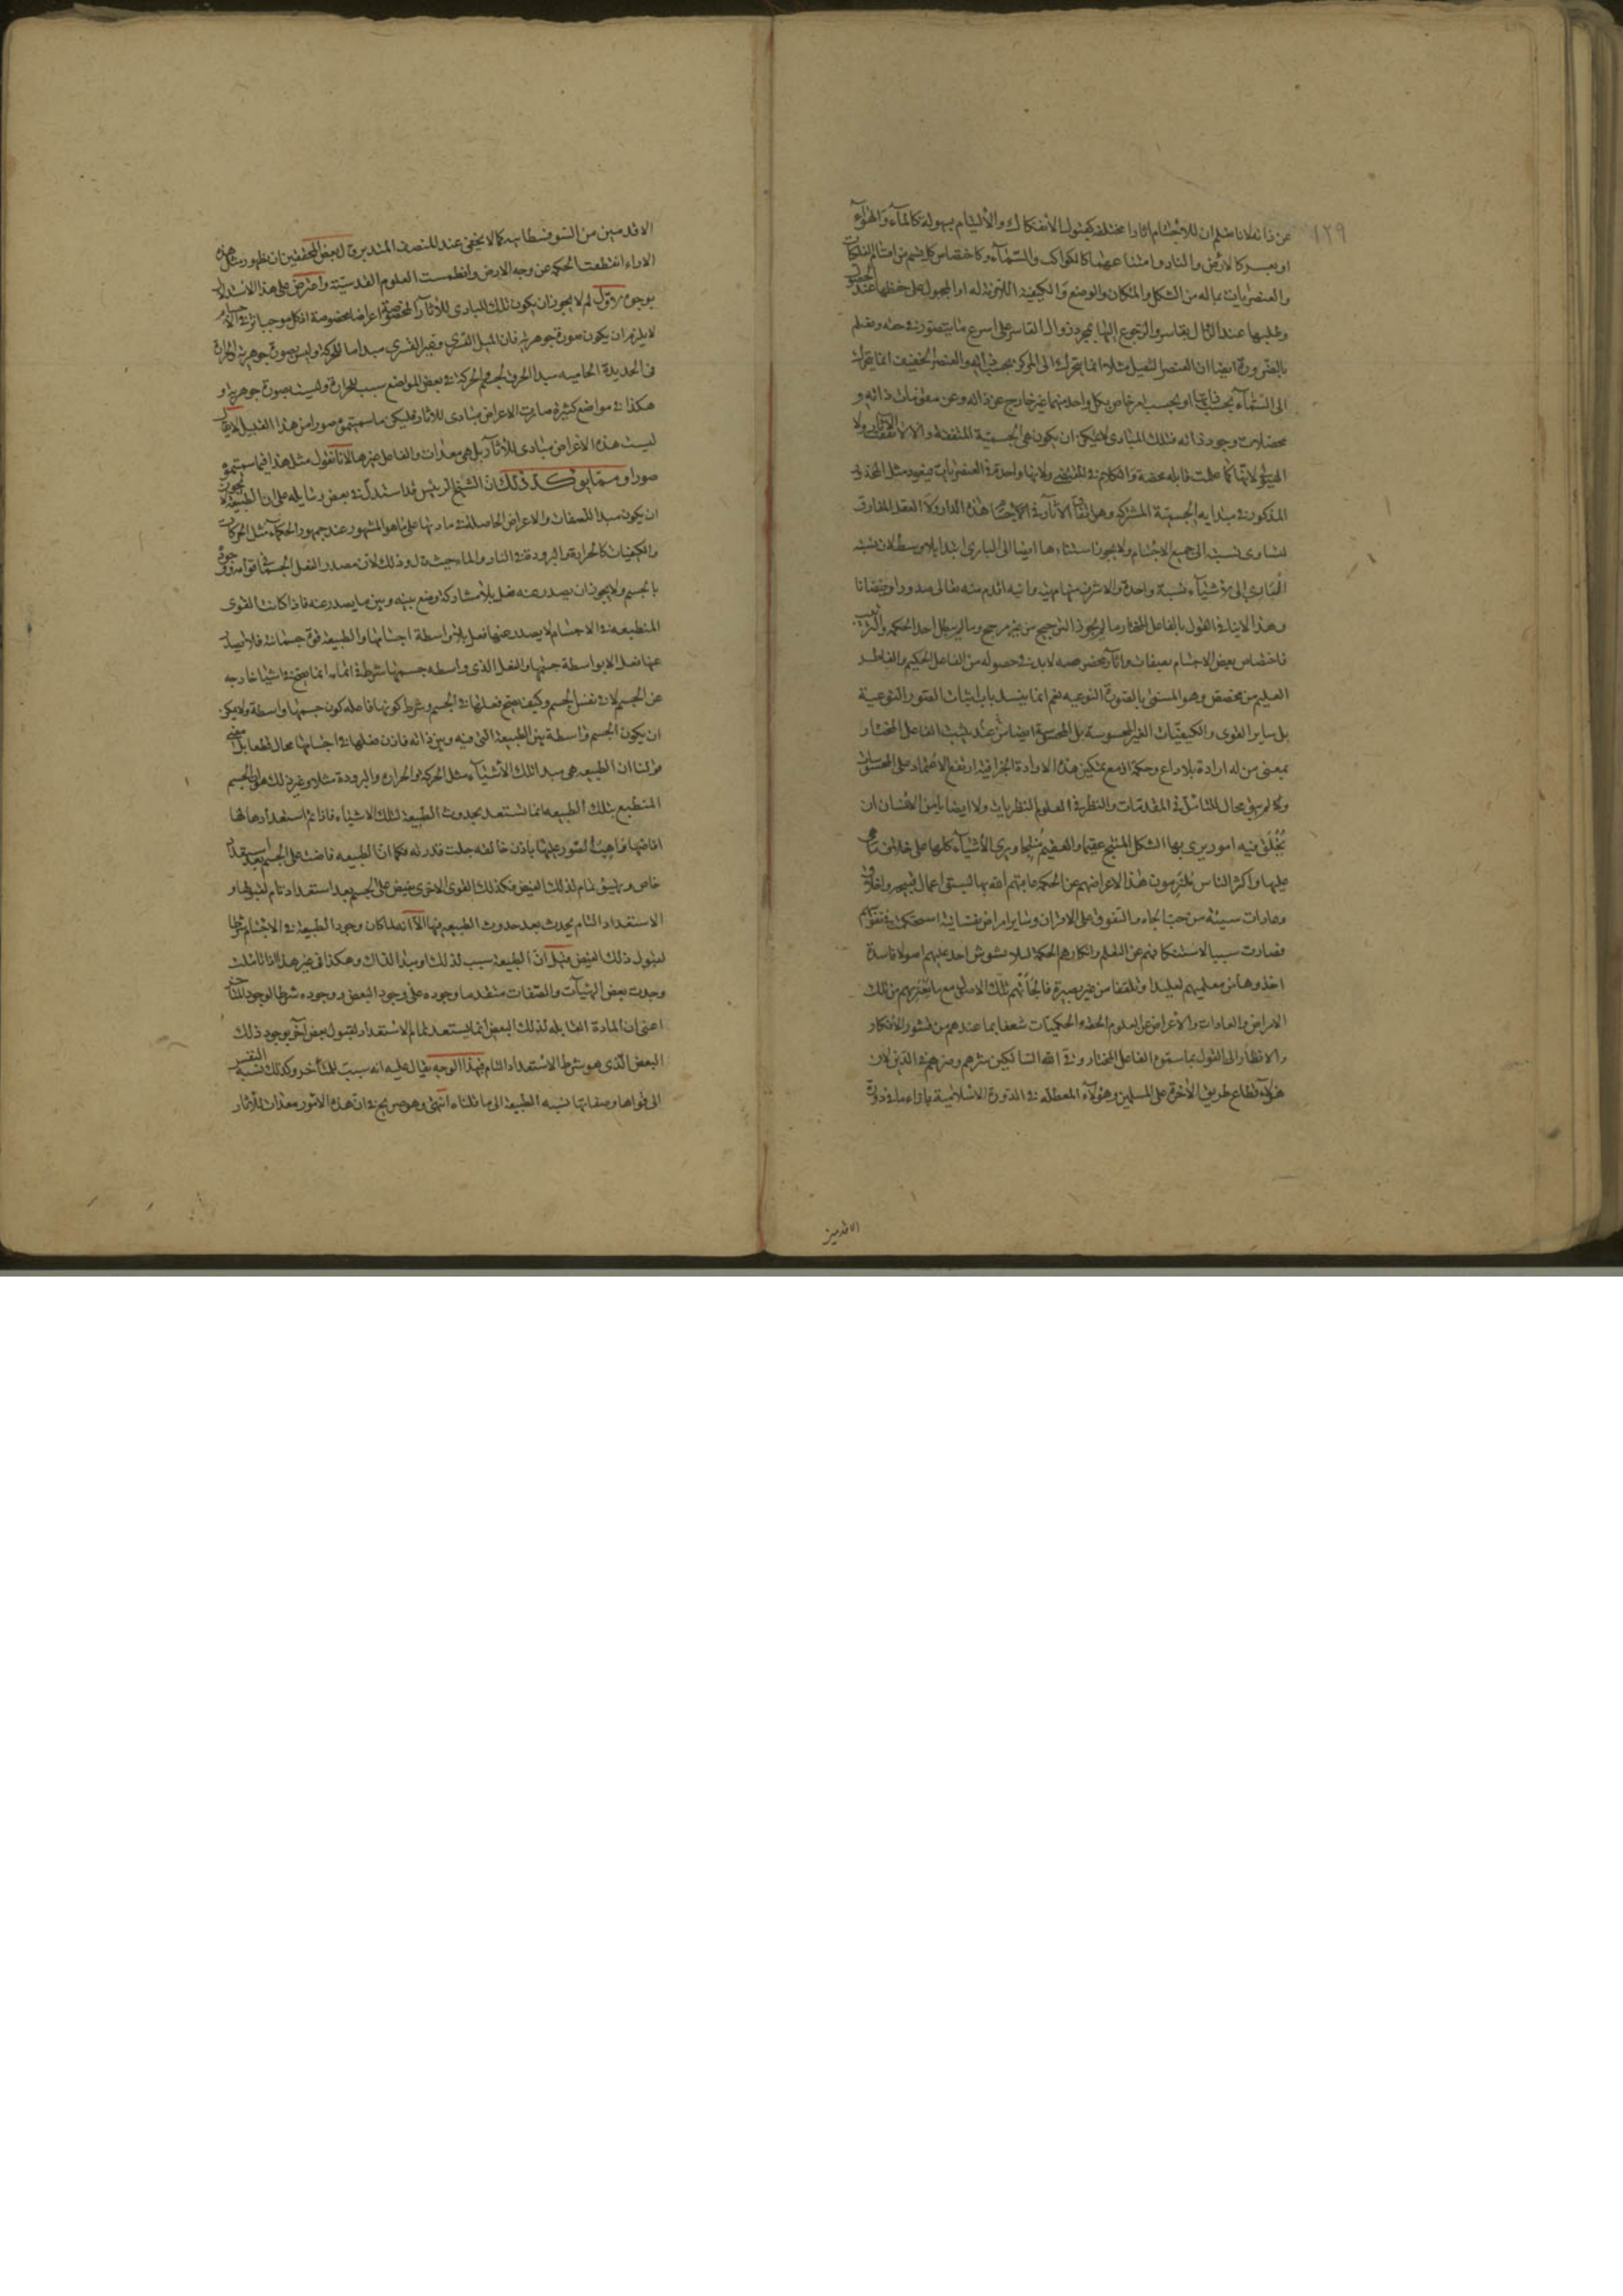 ١٢٩
عن ذاته لانا نعلم ان للاجسام اثارا مختلفة كقبول الانفكاك والالتيام بسهولة كالماء والهواء
او بعسر كالارض والنار وامتناعهما كالكواكب والسماء وكاختصاص كل قسم من اقسام الفلكيات
والعنصريات بما له من الشكل والمكان والوضع والكيفية اللازمة له او المجبول على حفظها عند الحصول
وطلبها عند الزوال بقاسر والرجوع اليها بمجرد زوال القاسر على اسرع ما يتصور في حقه ونعلم
بالضرورة ايضا ان العنصر الثقيل مثلا انما يتحرك الى المركز بحسب ذاته والعنصر الخفيف انما يتحرك
الى السماء بحسب ذاته او بحسب امر خاص بكل واحد منهما غير خارج عن ذاته وعن مقومات ذاته و
محصلات وجود ذاته فتلك المبادى لا يمكن ان يكون هي الجسمية المتفقة والا لاتفقت الاثار ولا
الهيولى لانها كما علمت قابلة محضة والكلام في المقتضي ولانها واحدة في العنصريات فيعود مثل المحذور
المذكور في مبدايه الجسمية المشتركة وهل اتفاق الاثار في الاجسام هذه الدار ولا العقل المفارق
لتساوى نسبته الى جميع الاجسام ولا يجوز استنادها ايضا الى البارى ابتداء بلا توسط لان نسبته
البارى الى الاشياء نسبة واحدة والاشرف منها مرتبة وانية اقدم منه تعالى صدورا وفيضانا
وهذا لا ينافي القول بالفاعل المختار ما لم يجوز الترجيح من غير مرجح وما لم يبطل احد الحكمة والترتيب
فاختصاص بعض الاجسام بصفات واثار مخصوصة لا بد في حصوله من الفاعل الحكيم والفاطر
العليم من مخصص وهو المسمى بالصورة النوعية نعم انما ينسد باب اثبات الصور النوعية
بل ساير القوى والكيفيات الغير المحسوسة بل المحسوسة ايضا من عند يثبت الفاعل المختار
بمعنى من له ارادة بلا داع وحكمة اذ مع تمكين هذه الارادة الجزافية ارتفع الاعتماد على المحسوسات
ولم يبق مجال للتامل في المقدمات والنظر في العلوم النظريات ولا ايضا يامن الانسان ان
يخلق فيه امور يرى بها الشكل المنتج عقيما والعقيم منتجا ويرى الاشياء كلها على خلاف ما هي
عليها واكثر الناس يلتزمون هذا لاعراضهم عن الحكمة عاقبهم الله بها لسبق اعمال قبيحة واخلاق
وعادات سيئة من حب الجاه والتفوق على الاقران وساير امراض نفسانية استحكمت في نفوسهم
فصارت سببا لاستنكافهم عن التعلم وانكارهم الحكمة لئلا يشوش احد عليهم اصولا فاسدة
اخذوها من معلميهم تقليدا وتلقفا من غير بصيرة فالجاتهم تلك الاصول مع ما يعتريهم من تلك
الامراض والعادات والاعراض عن العلوم الحقة والحكميات شعفا بما عندهم من قشور الافكار
والانظار الى القول بما سموه الفاعل المختار وقى الله السالكين شرهم وضرهم في الدين لان
هؤلاء قطاع طريق الاخرة على المسلمين وهؤلاء المعطلة في الدورة الاسلامية بازاء ما في دورة
الاقدمين
الاقدمين من السوفسطائية كما لا يخفى عند المنصف المتدبر وقال بعض المحققين ان ظهور مثل هذه
الاراء انقطعت الحكمة عن وجه الارض وانطمست العلوم القدسية واعترض على هذا الاستدلال
بوجوه الاول لم لا يجوز ان يكون تلك المبادى للاثار المخصوصة اعراضا مخصوصة اذ كل موجب اثر في الاجسام
لا يلزم ان يكون صورة جوهرية فان الميل القسرى وغير القسرى مبدا ما للحركة وليس بصورة جوهرية والحرارة
في الحديدة الحامية مبدا الحرق لجسم والحركة في بعض المواضع سبب للحرارة وليست بصورة جوهرية و
هكذا في مواضع كثيرة صارت الاعراض مبادى للاثار فليكن ما سميتموه صورا من هذا القبيل لا يقال
ليست هذه الاعراض مبادى للاثار بل هي معدات والفاعل غيرها لانا نقول مثل هذا فيما سميتموه
صورا ومما يؤكد ذلك ان الشيخ الرئيس قد استدل في بعض رسايله على ان الطبيعة لا يجوز
ان يكون مبدا للصفات والاعراض الحاصلة في مادتها على ما هو المشهور عند جمهور الحكماء مثل الحركات
والكيفيات كالحرارة والبرودة في النار والماء حيث قال وذلك لان مصدر الفعل الجسماني قوامه ووجوده
بالجسم ولا يجوز ان يصدر عنه فعل بلا مشاركة وضع بينه وبين ما يصدر عنه فاذا كانت القوى
المنطبعة في الاجسام لا يصدر عنها فعل بلا واسطة اجسامها والطبيعة قوة جسمانية فلا يصدر
عنها فعل الا بواسطة جسمها والفعل الذى واسطة جسمها شرط في اتمامه انما يصح في اشيا خارجة
عن الجسم لا في نفس الجسم وكيف يصح فعلها في الجسم وشرط كونها فاعلة كون جسمها واسطة ولا يمكن
ان يكون الجسم واسطة بين الطبيعة التي فيه وبين ذاته فاذن فعلها في اجسامها محال قطعا بل معنى
قولنا ان الطبيعة هي مبدا تلك الاشياء مثل الحركة والحرارة والبرودة مثلا وغير ذلك هو ان الجسم
المنطبع بتلك الطبيعة انما تستعد بحدوث الطبيعة لتلك الاشياء فاذا تم استعدادها لها
افاضها واهب الصور عليها باذن خالقه جلت قدرته فكما ان الطبيعة فاضت على الجسم بعد استعداد
خاص وتهيئ تام لذلك الفيض فكذلك القوى الاخرى يفيض على الجسم بعد استعداد تام لقبولها و
الاستعداد التام يحدث بعد حدوث الطبيعة فيها الا انه لما كان وجود الطبيعة في الاجسام شرطا
لقبول ذلك الفيض قيل ان الطبيعة سبب لذلك او مبدا لذاك وهكذا في غير هذا اذا تاملت
وجدت بعض الهيئات والصفات متقدما وجوده على وجود البعض ووجوده شرطا لوجود المتاخر
اعنى ان المادة القابلة لذلك البعض انما يستعد تمام الاستعداد لقبول بعض اخر بوجود ذلك
البعض الذى هو شرط الاستعداد التام فبهذا الوجه يقال عليه انه سبب للمتاخر وكذلك نسبة النفس
الى قواها وصفاتها نسبة الطبيعة الى ما قلناه انتهى وهو صريح في ان هذه الامور معدات للاثار